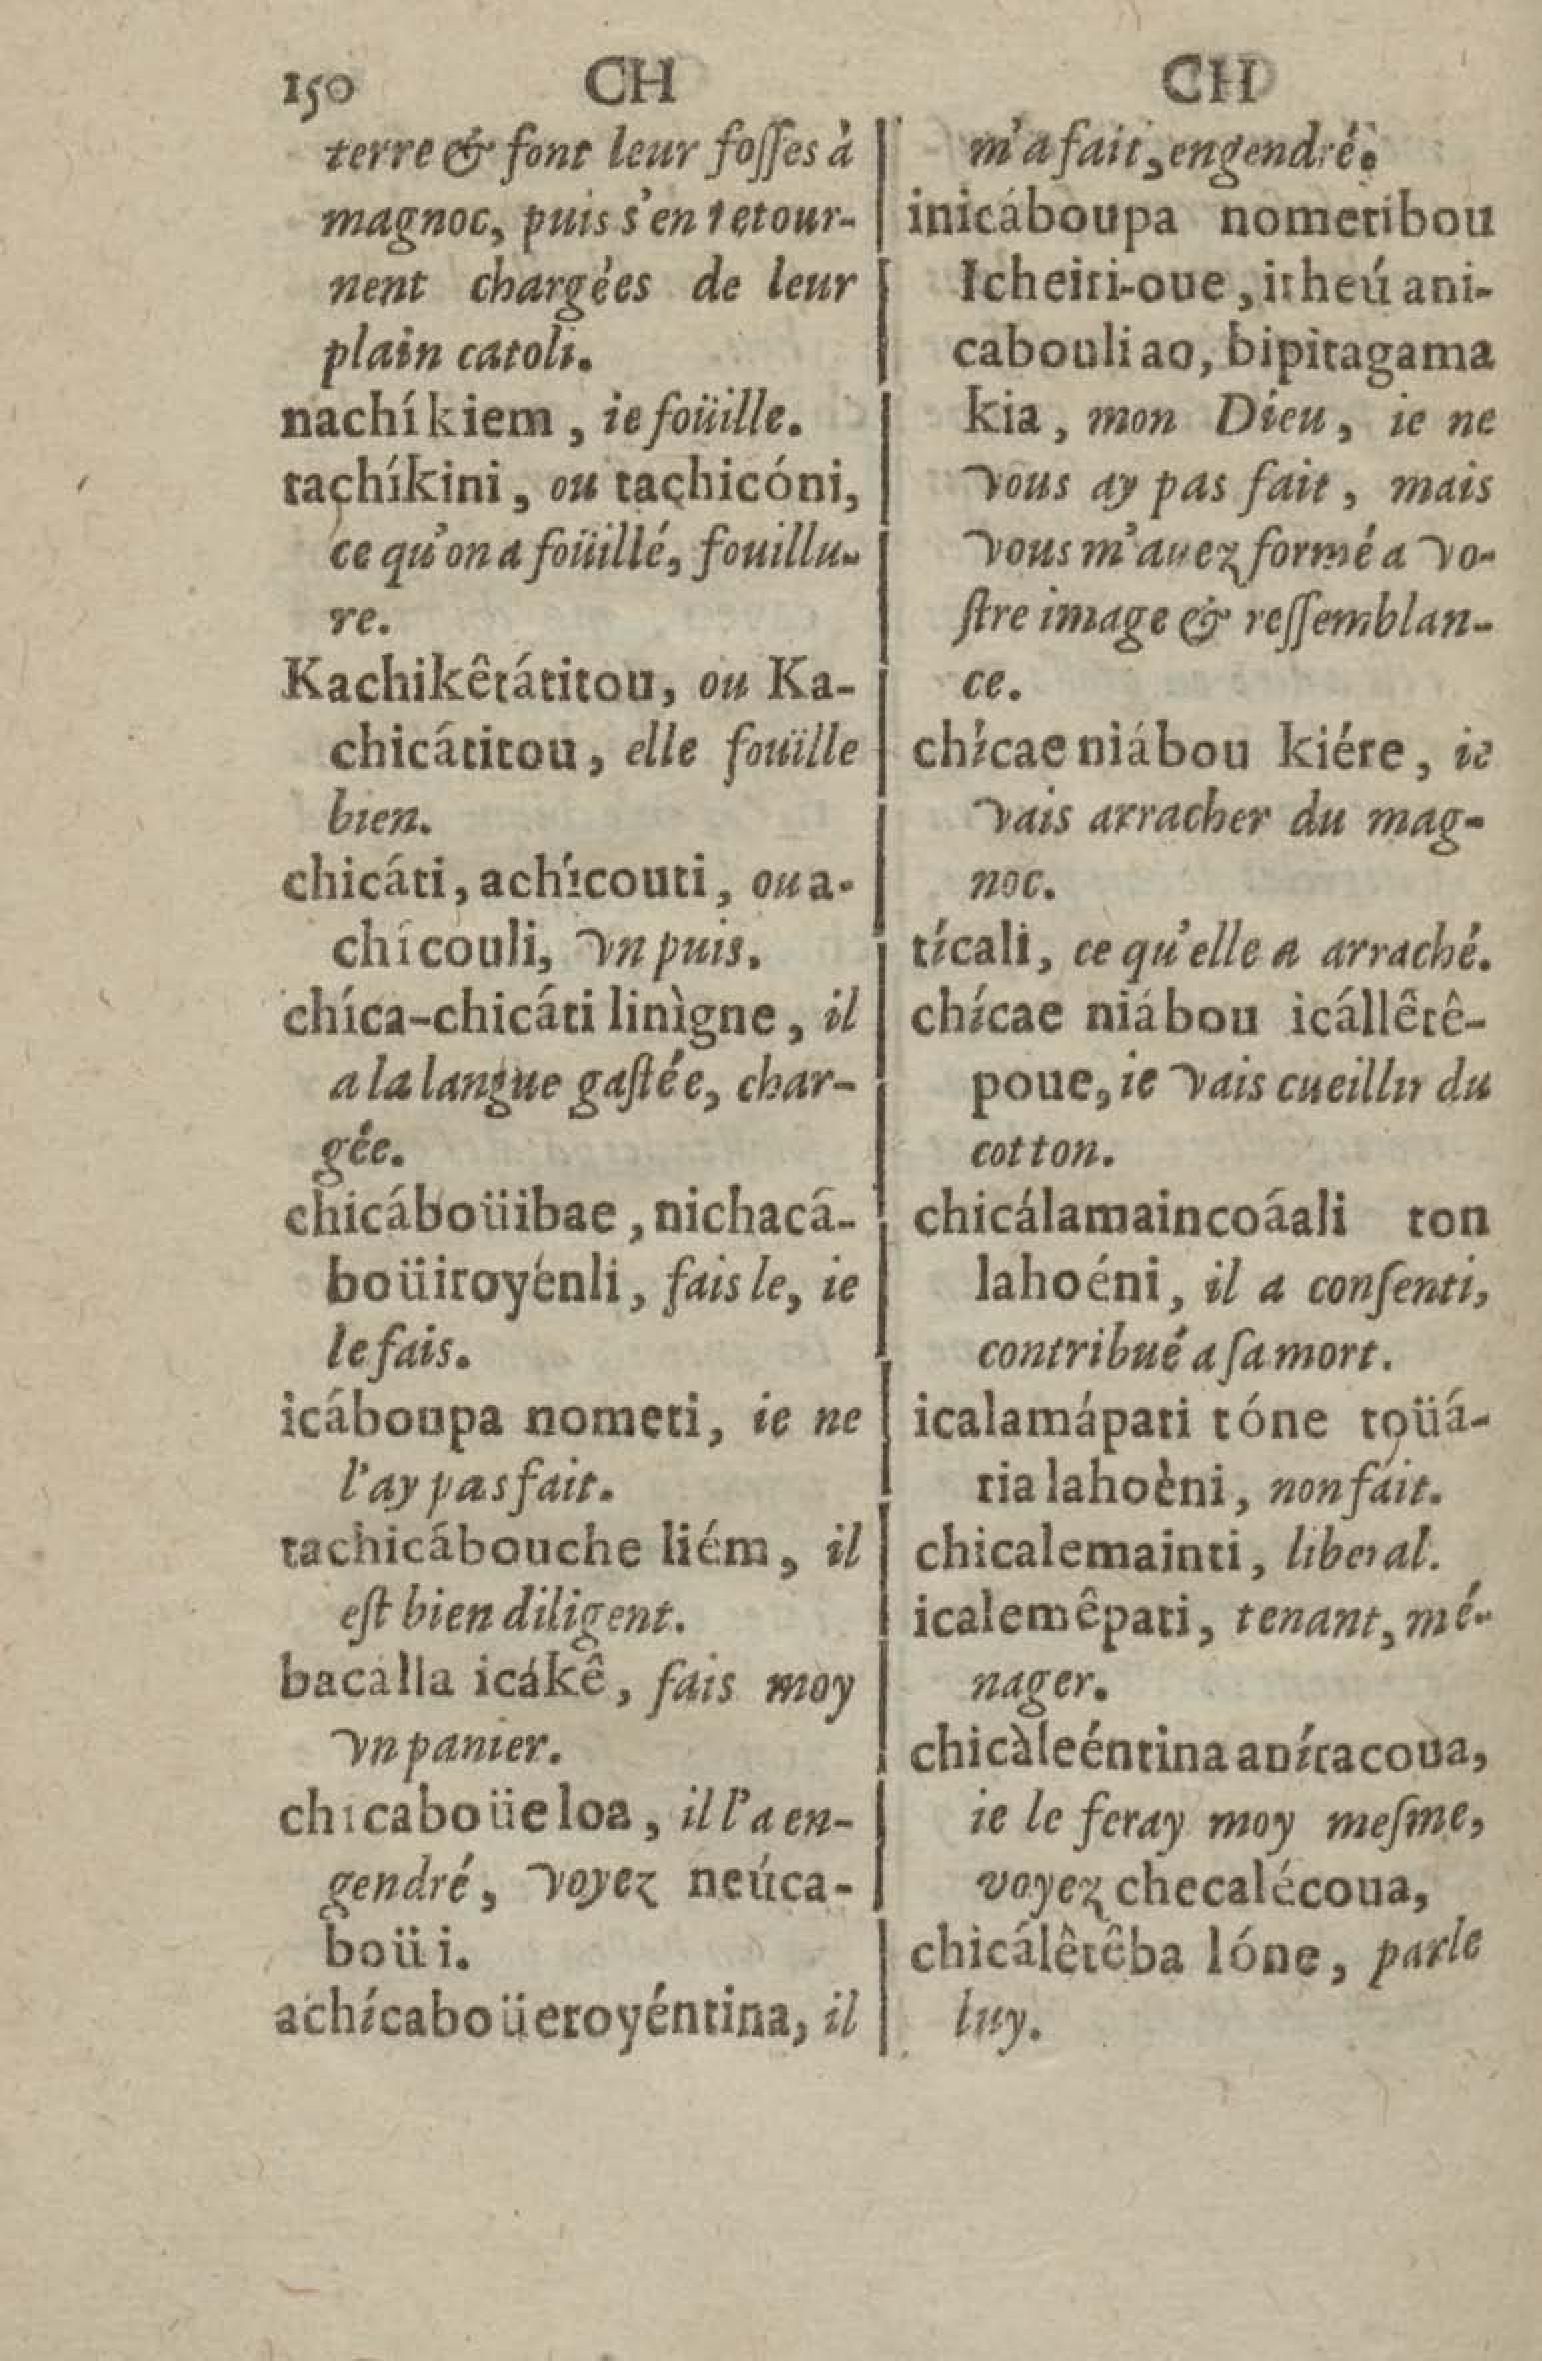 150 CH CH
terre & font leur fosses à
magnoc, puis s'en retour-
nent chargèes de leur
plain catoli.
nachíkiem, ie foüille.
taçhíkini, ou taçhicóni,
ce qu'on a foüillé, fouillu-
re.
Kachikêtátitou, ou Ka-
chicátitou, elle fouïlle
bien.
chicáti, achícouti, ou a-
chícouli, vn puis.
chíca-chicáti linìgne, il
a la langue gaſtée, char-
gée.
chicáboüibae, nichacá-
boüiroyénli, fais le, ie
le fais.
icáboupa nometi, ie ne
l'ay pas fait.
tachicábouche liém, il
eſt bien diligent.
bacálla icákê, fais moy
vn panier.
chicaboüeloa, il l'a en-
gendré, voyez neúca-
boüi.
achícaboüeroyéntina, il
m'a fait, engendré.
inicáboupa nometibou
Icheiri-oue, itheú ani-
cabouliao, bipitagama
kia, mon Dieu, ie ne
vous ay pas fait, mais
vous m'auez formé a vo-
ſtre image & reſſemblan-
ce.
chícae niábou kiére, ie
vais arracher du mag-
noc.
tícali, ce qu'elle a arraché.
chícae niábou icállêtê-
poue, ie vais cueillir du
cotton.
chicálamaincoáali ton
lahoéni, il a conſenti,
contribué a ſa mort.
icalamápati tóne toüá-
ria lahoèni, non fait.
chicalemainti, liberal.
icalemêpati, tenant, mé-
nager.
chicàleéntina anítacoua,
ie le feray moy meſme,
voyez checalécoua,
chicálêtêba lóne, parle
luy.